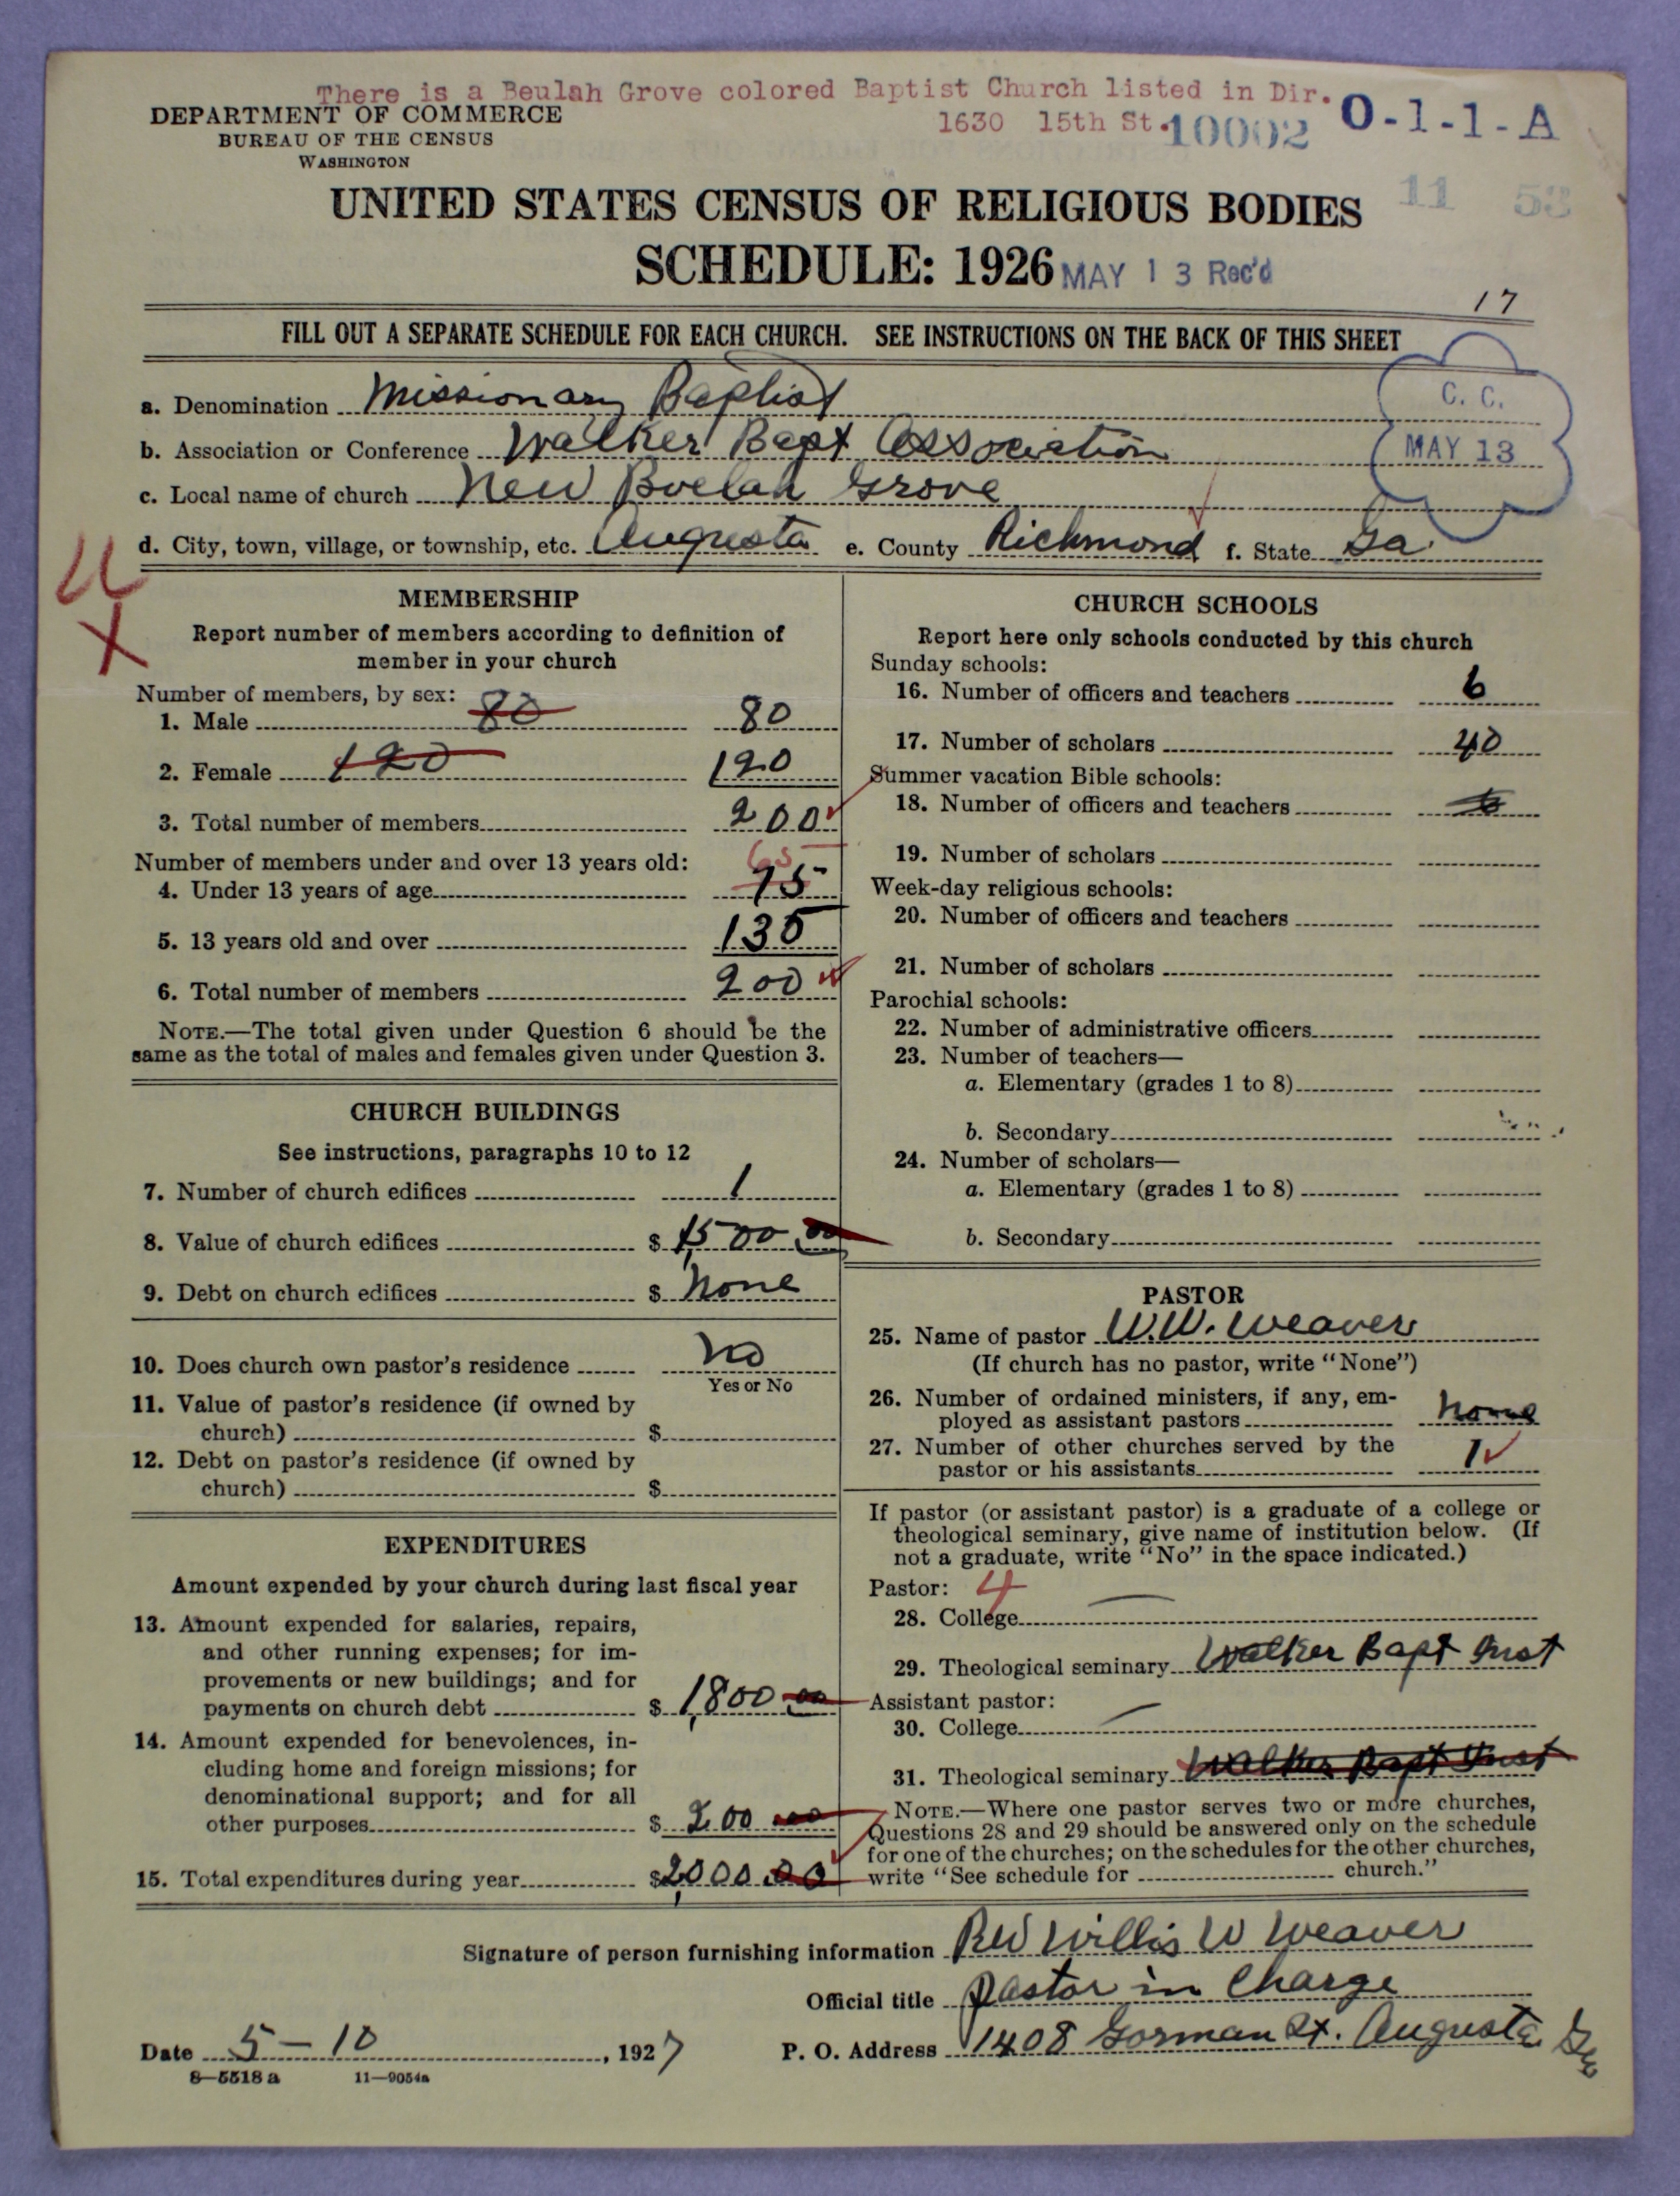 There is a Beulah Grove colored Baptist Church listed in Dir.
1630 15th St.
10002
O-1-1-A
DEPARTMENT OF COMMERCE
BUREAU OF THE CENSUS
WASHINGTON
11 53
UNITED STATES CENSUS OF RELIGIOUS BODIES
SCHEDULE: 1926
MAY 13 Rec'd
17
FILL OUT A SEPARATE SCHEDULE FOR EACH CHURCH. SEE INSTRUCTIONS ON THE BACK OF THIS SHEET
C. C.
MAY 13
a. Denomination Missionary Baptist
b. Association or Conference Walker Bapt Association
c. Local name of church New Buelah Grove
d. City, town, village, or township, etc. Augusta e. County Richmond f. State Ga.
X
MEMBERSHIP
Report number of members according to definition of
member in your church
Number of members, by sex:
1. Male 80 80
2. Female 120 120
3. Total number of members 200
Number of members under and over 13 years old:
65
4. Under 13 years of age 75
5. 13 years old and over 135
6. Total number of members 200
NOTE.—The total given under Question 6 should be the
same as the total of males and females given under Question 3.
CHURCH BUILDINGS
See instructions, paragraphs 10 to 12
7. Number of church edifices 1
8. Value of church edifices $ 1,500 00
9. Debt on church edifices $ None
10. Does church own pastor's residence No
Yes or No
11. Value of pastor's residence (if owned by
church) $
12. Debt on pastor's residence (if owned by
church) $
EXPENDITURES
Amount expended by your church during last fiscal year
13. Amount expended for salaries, repairs,
and other running expenses; for im-
provements or new buildings; and for
payments on church debt $ 1,800 00
14. Amount expended for benevolences, in-
cluding home and foreign missions; for
denominational support; and for all
other purposes $ 200 00
15. Total expenditures during year $2,000.00
CHURCH SCHOOLS
Report here only schools conducted by this church
Sunday schools:
16. Number of officers and teachers 6
17. Number of scholars 40
Summer vacation Bible schools:
18. Number of officers and teachers 6
19. Number of scholars
Week-day religious schools:
20. Number of officers and teachers
21. Number of scholars
Parochial schools:
22. Number of administrative officers
23. Number of teachers—
a. Elementary (grades 1 to 8)
b. Secondary
24. Number of scholars—
a. Elementary (grades 1 to 8)
b. Secondary
PASTOR
25. Name of pastor W.W. Weaver
(If church has no pastor, write "None")
26. Number of ordained ministers, if any, em-
ployed as assistant pastors None
27. Number of other churches served by the
pastor or his assistants 1
If pastor (or assistant pastor) is a graduate of a college or
theological seminary, give name of institution below. (If
not a graduate, write "No" in the space indicated.)
Pastor: 4
28. College
29. Theological seminary Walker Bapt Inst
Assistant pastor:
30. College
31. Theological seminary Walker Bapt Inst
NOTE.—Where one pastor serves two or more churches,
Questions 28 and 29 should be answered only on the schedule
for one of the churches; on the schedules for the other churches,
write "See schedule for church."
Signature of person furnishing information Rev Willis W Weaver
Official title Pastor in Charge
Date 5-10, 1927
P. O. Address 1408 Gorman St. Augusta Ga
8—5518 a 11—9054a